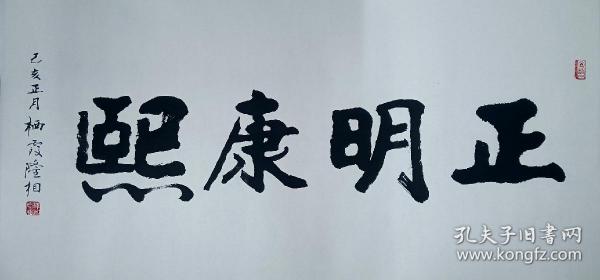 正明康熙
己亥正月栖霞隆相
孔夫子旧书网
www.kongfz.com